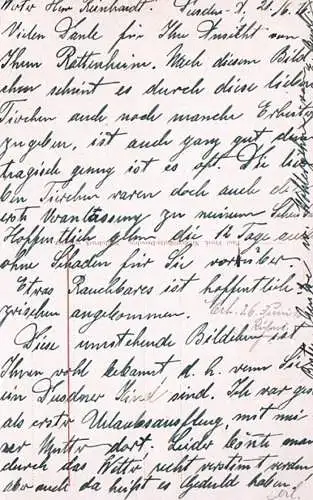 Wertr Herr Reinhardt! Dresden-N. 21./6. 16
Vielen Dank für Ihre Ansicht von
Ihrem Rattenheim. Nach diesem Bild
chen scheint es durch diese lieben
Tierchen auch noch manche Erheiterg
zugeben, ist auch ganz gut denn
tragisch genug ist es oft. Die lie
ben Tierchen waren doch auch die
erste Veranlassung zu meinem
Hoffentlich gehen die 12 Tage auch
ohne Schaden für Sie vorüber
Etwas Rauchbares ist hoffentlich in
zwischen angekommen.
Erh. 26. Juni
Diese umstehende Bildchen ist
Ihnen wohl bekannt d. h. wenn Sie
ein Dresdner Kind sind. Ich war ges
als erster Urlaubsausflug, mit mei
ner Mutter dort, leider könnte man
durch das Wetter recht verstimmt werden
aber auch da heißt es Geduld haben!